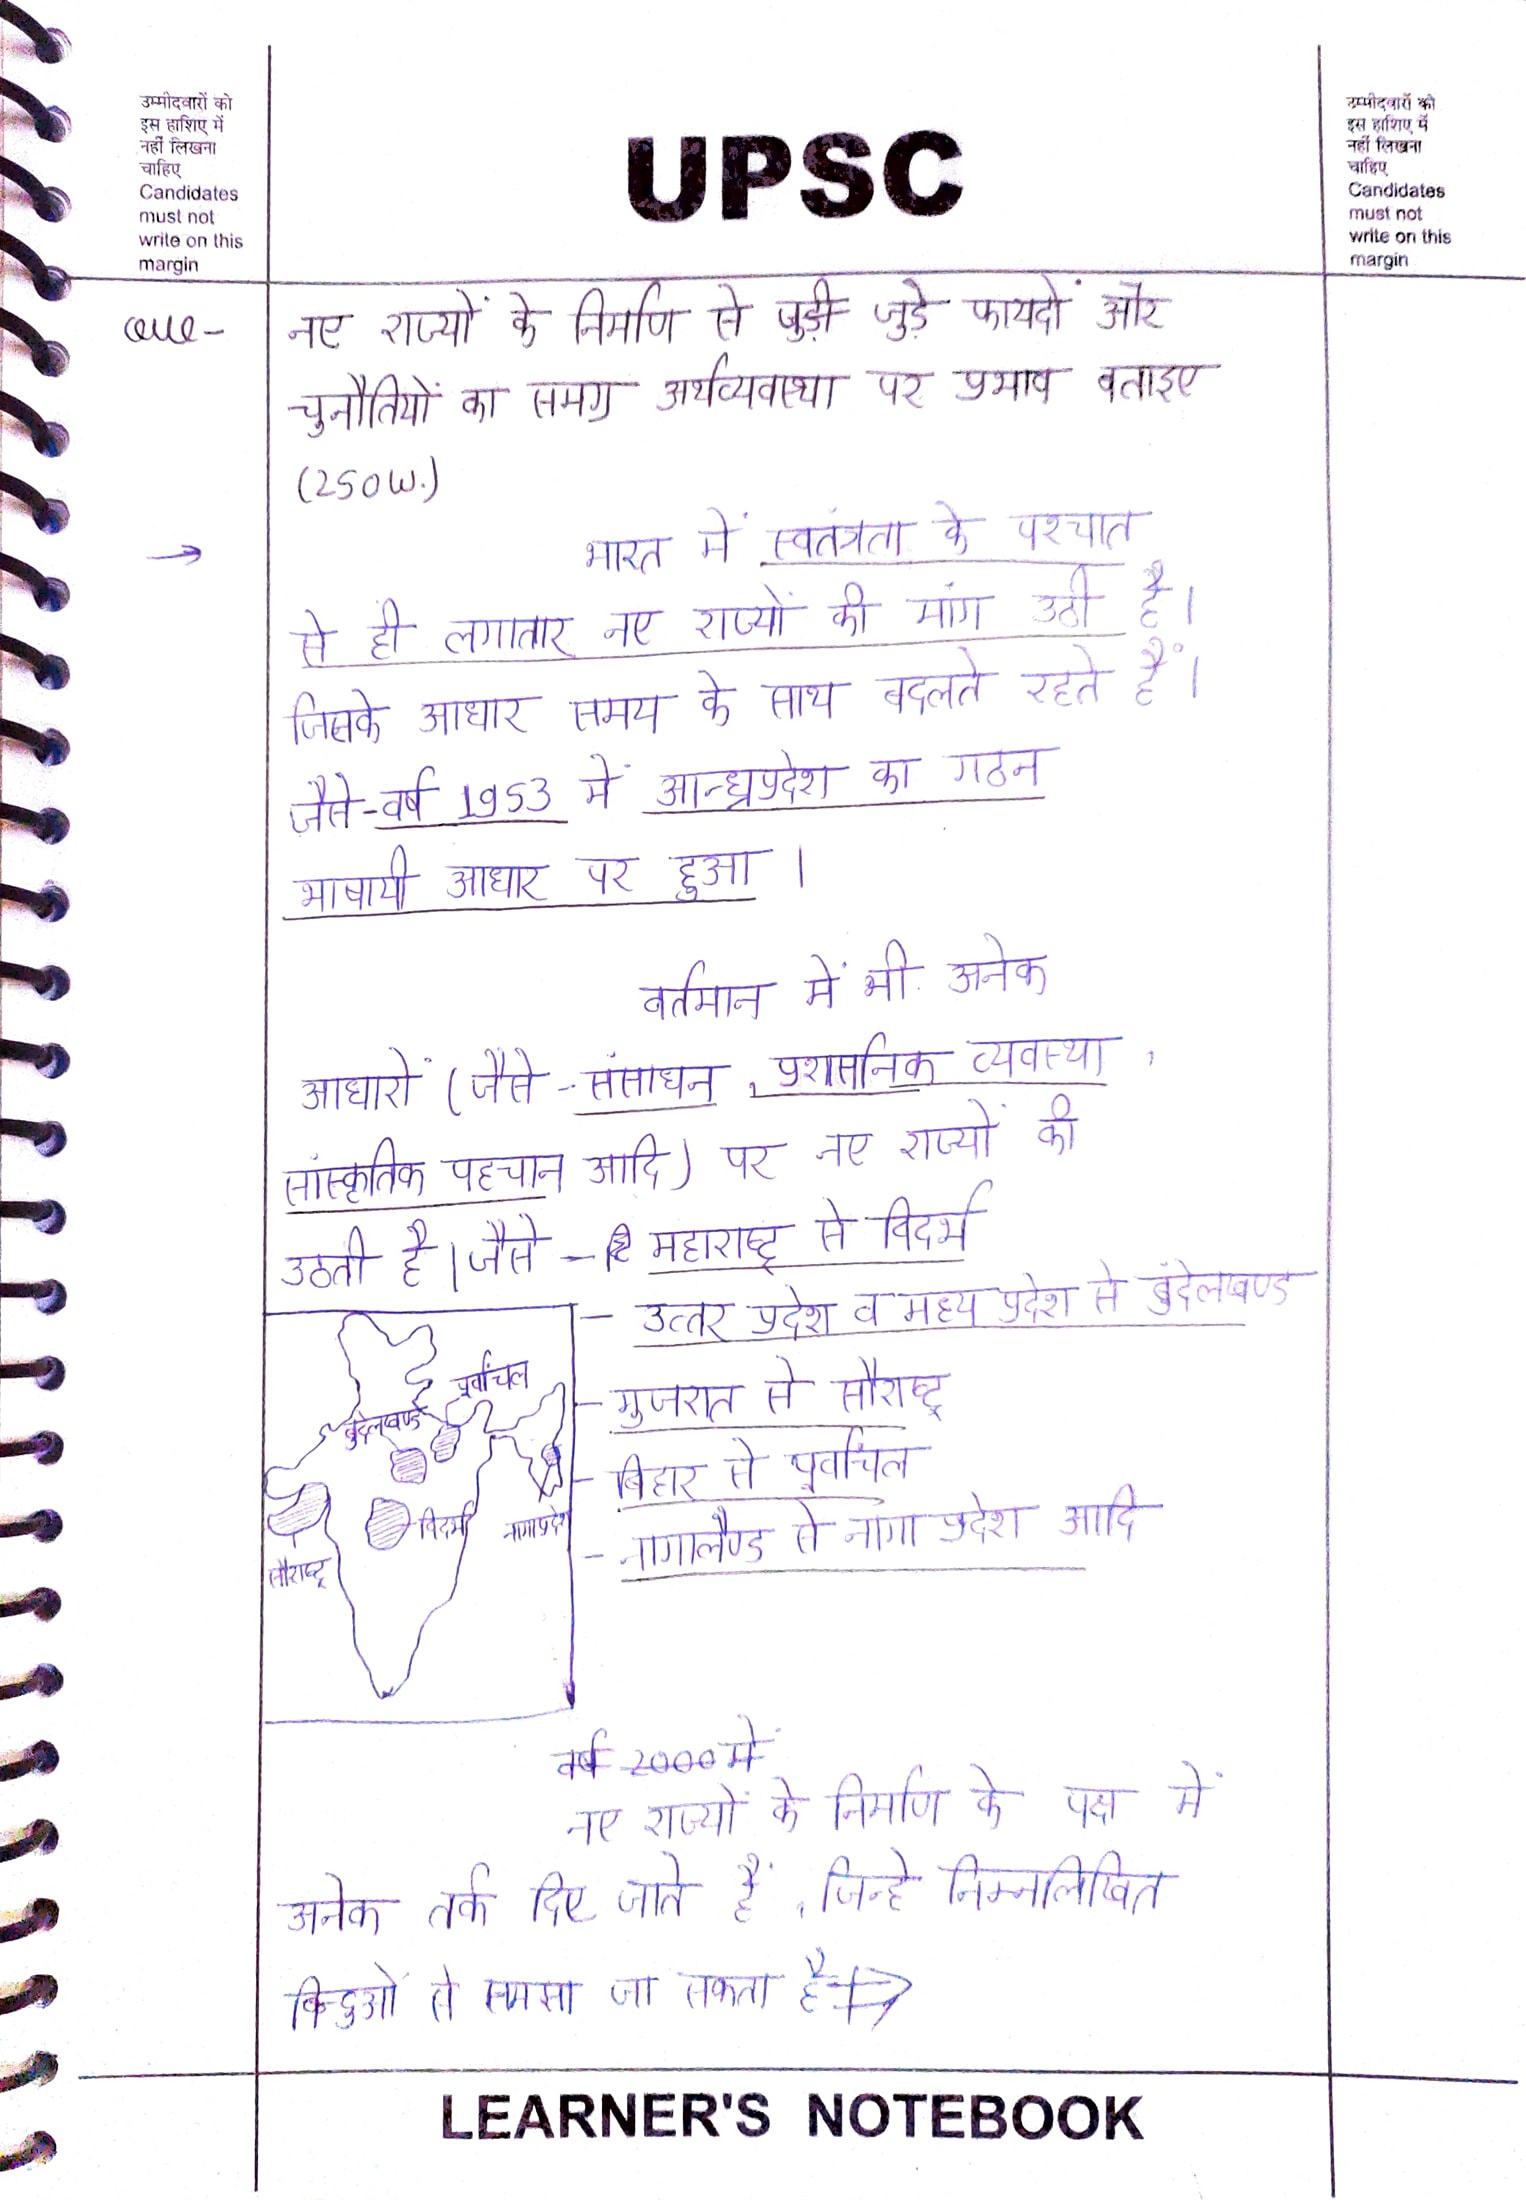 उम्मीदवारों को
इस हाशिए में
नहीं लिखना
चाहिए
Candidates
must not
write on this
margin
UPSC
उम्मीदवारों को
इस हाशिए में
नहीं लिखना
चाहिए
Candidates
must not
write on this
margin
que- नए राज्यों के निर्माण से जुड़ी जुड़े फायदों और
चुनौतियों का समग्र अर्थव्यवस्था पर प्रभाव बताइए
(250W.)
→ भारत में स्वतंत्रता के पश्चात
से ही लगातार नए राज्यों की मांग उठी है।
जिसके आधार समय के साथ बदलते रहते हैं।
जैसे-वर्ष 1953 में आन्ध्रप्रदेश का गठन
भाषायी आधार पर हुआ।
वर्तमान में भी अनेक
आधारों (जैसे - संसाधन, प्रशासनिक व्यवस्था,
सांस्कृतिक पहचान आदि) पर नए राज्यों की
उठती है। जैसे - महाराष्ट्र से विदर्भ
- उत्तर प्रदेश व मध्य प्रदेश से बुंदेलखण्ड
- गुजरात से सौराष्ट्र
- बिहार से पूर्वांचल
- नागालैण्ड से नागा प्रदेश आदि
पूर्वांचल
बुंदेलखण्ड
विदर्भ
नागाप्रदेश
सौराष्ट्र
वर्ष 2000 में
नए राज्यों के निर्माण के पक्ष में
अनेक तर्क दिए जाते हैं, जिन्हे निम्नलिखित
बिन्दुओं से समझा जा सकता है
LEARNER'S NOTEBOOK